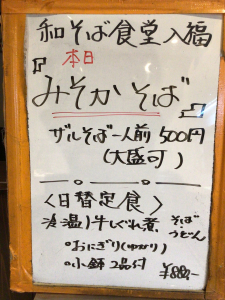 和そば食堂入福
本日
みそかそば
ザルそば一人前 500円
(大盛可)
<日替定食>
冷(温)牛しぐれ煮 そば うどん
おにぎり(ゆかり)
小鉢2品付
¥880-